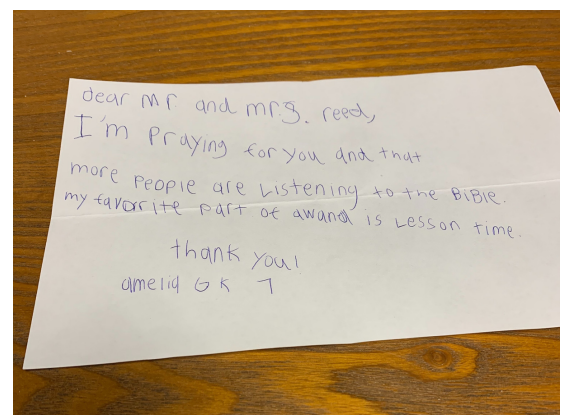 dear Mr and mrs. reed,
I'm Praying for you and that
more People are Listening to the BiBle.
my favorite part of awana is Lesson time.
thank you!
amelia G K 7